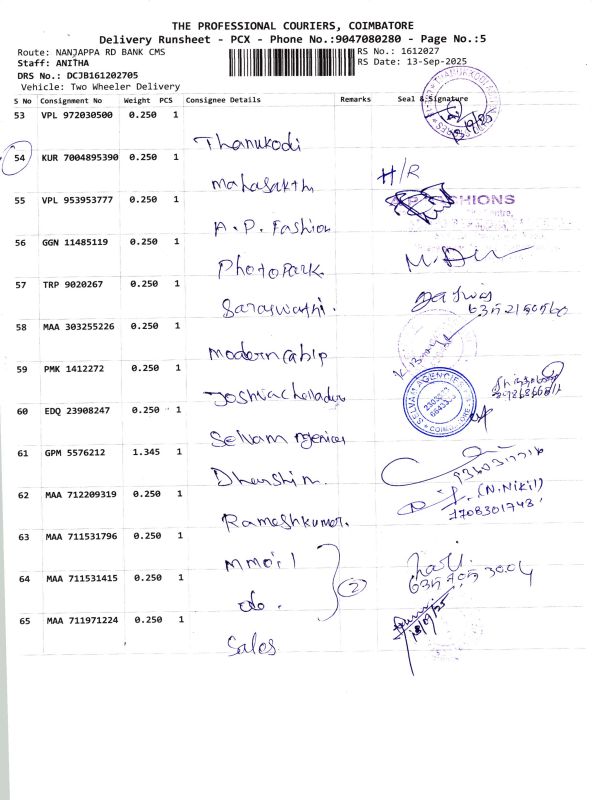 THE PROFESSIONAL COURIERS, COIMBATORE
Delivery Runsheet - PCX - Phone No.:9047080280 - Page No.:5
Route: NANJAPPA RD BANK CMS
RS No.: 1612027
Staff: ANITHA
RS Date: 13-Sep-2025
DRS No.: DCJB161202705
Vehicle: Two Wheeler Delivery
S No Consignment No Weight PCS Consignee Details Remarks Seal & Signature
53 VPL 972030500 0.250 1
Thanukodi
13/9/25
54 KUR 7004895390 0.250 1
Mahasakthi
H/R
55 VPL 953953777 0.250 1
A.P. Fashion
56 GGN 11485119 0.250 1
Photo Park
57 TRP 9020267 0.250 1
Saraswathi.
58 MAA 303255226 0.250 1
Modern
59 PMK 1412272 0.250 1
Joshva
60 EDQ 23908247 0.250 1
Selvam Agencies
SELVAM AGENCIES
COIMBATORE
61 GPM 5576212 1.345 1
Dharshin.
62 MAA 712209319 0.250 1
Rameshkumar.
(N.Nikil)
1708301743.
63 MAA 711531796 0.250 1
64 MAA 711531415 0.250 1
do.
2
Hari.
65 MAA 711971224 0.250 1
Sales
13/09/25